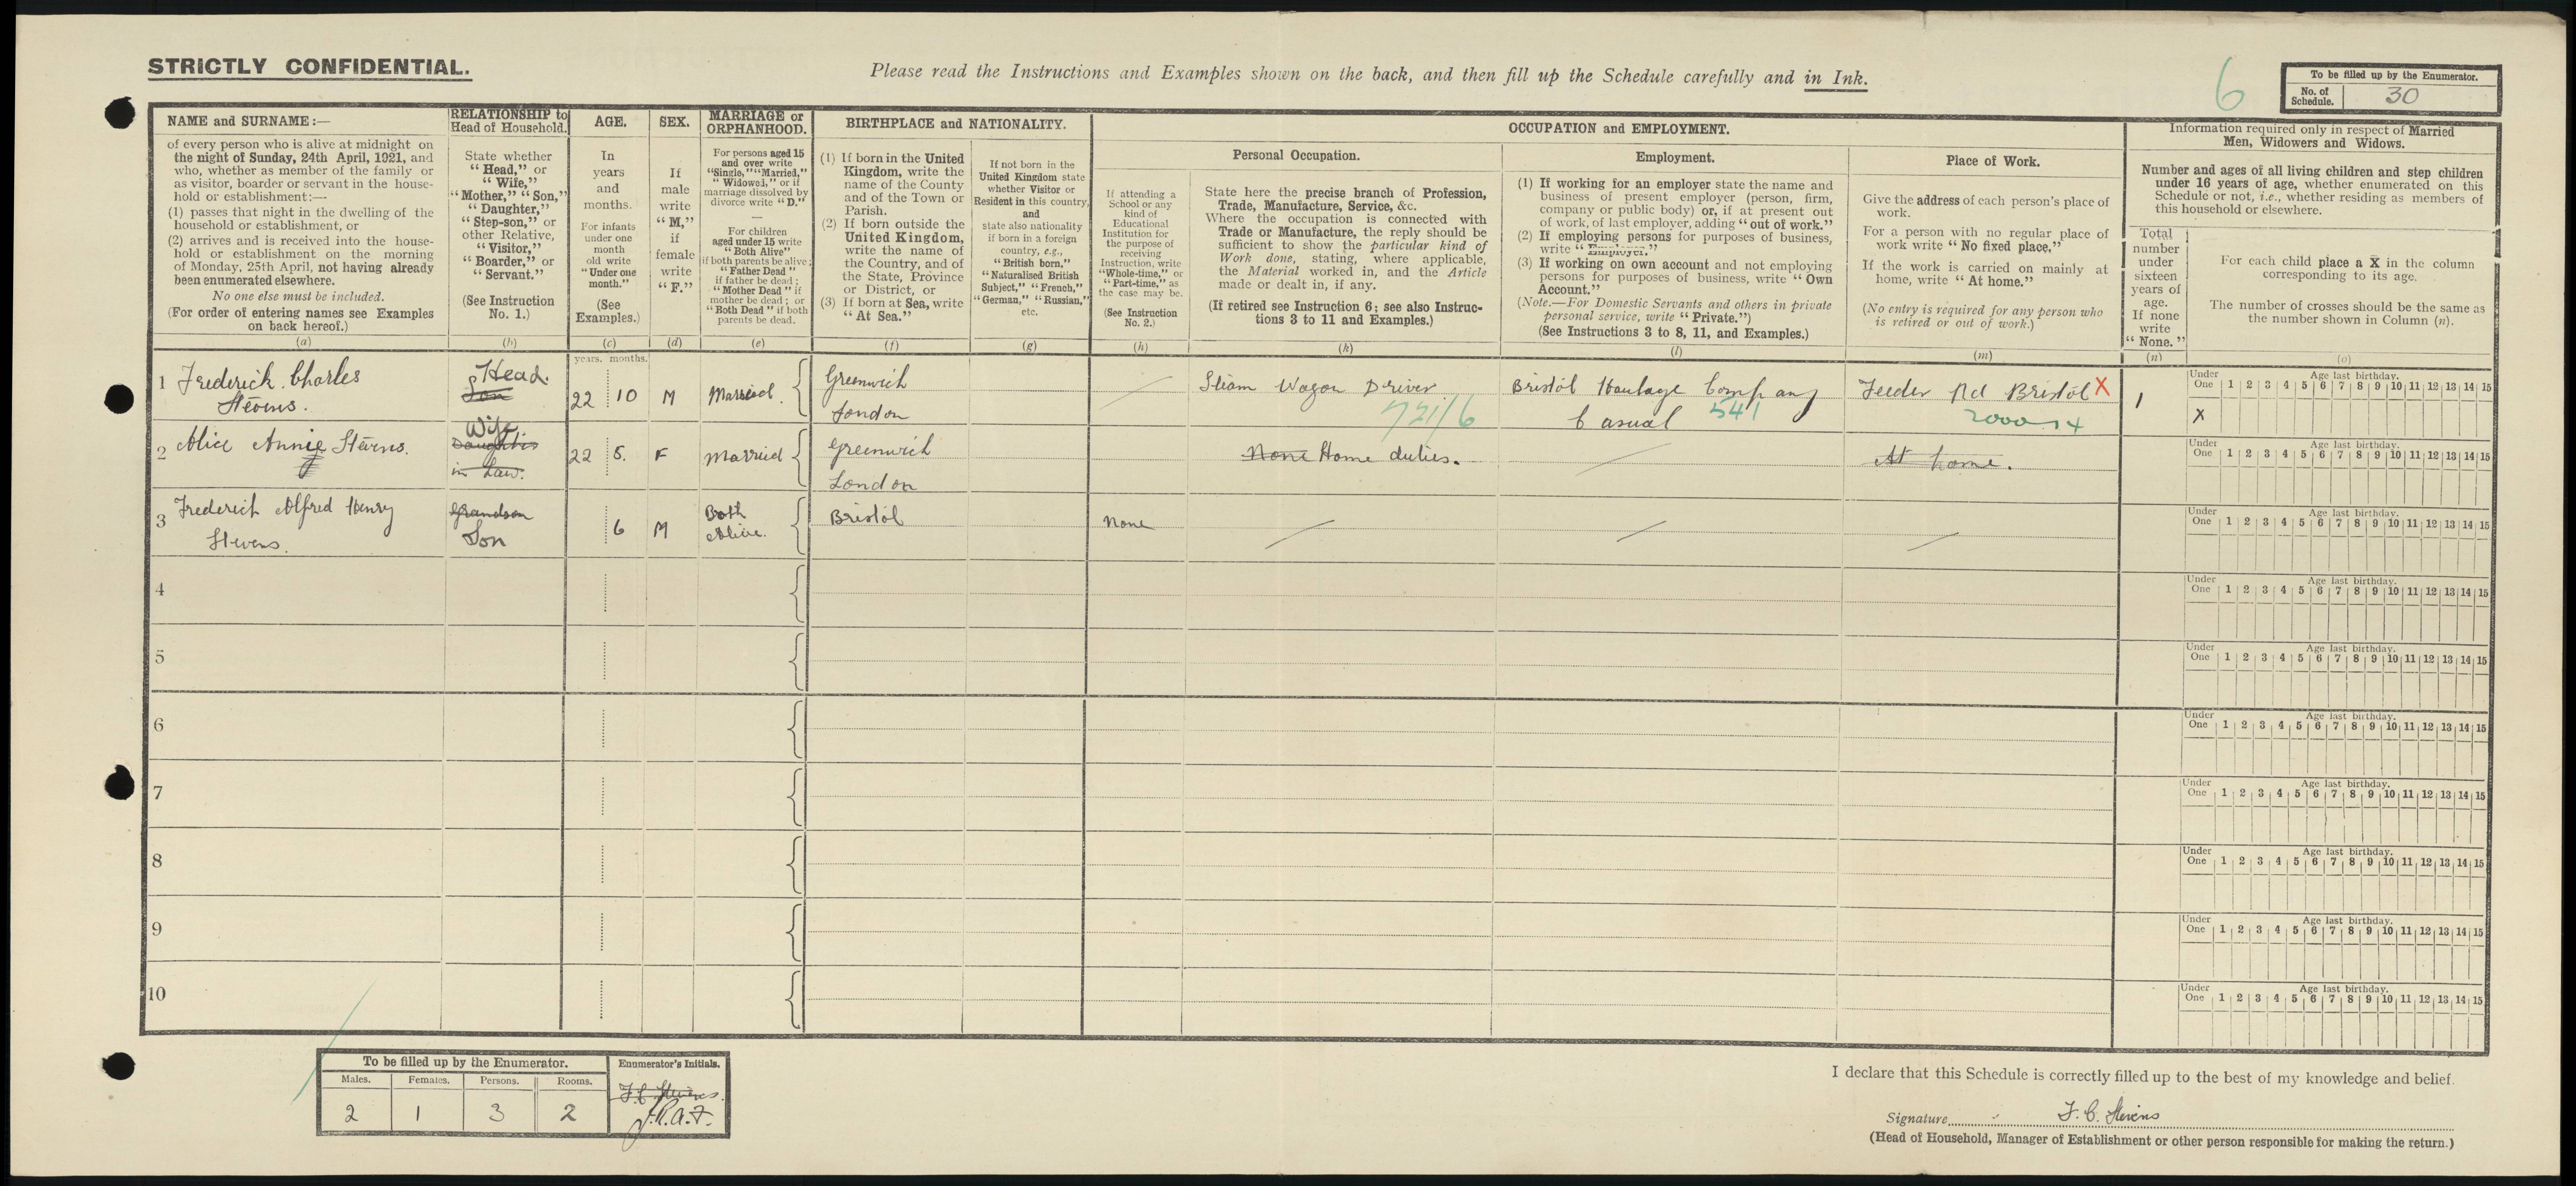 STRICTLY CONFIDENTIAL.
Please read the Instructions and Examples shown on the back, and then fill up the Schedule carefully and in Ink.
6
To be filled up by the Enumerator.
No. of Schedule. 30
NAME and SURNAME:—
of every person who is alive at midnight on
the night of Sunday, 24th April, 1921, and
who, whether as member of the family or
as visitor, boarder or servant in the house-
hold or establishment:—
(1) passes that night in the dwelling of the
household or establishment, or
(2) arrives and is received into the house-
hold or establishment on the morning
of Monday, 25th April, not having already
been enumerated elsewhere.
No one else must be included.
(For order of entering names see Examples
on back hereof.)
(a)
RELATIONSHIP to
Head of Household.
State whether
"Head," or
"Wife,"
"Mother," "Son,"
"Daughter,"
"Step-son," or
other Relative,
"Visitor,"
"Boarder," or
"Servant."
(See Instruction
No. 1.)
(b)
AGE.
In
years
and
months.
For infants
under one
month
old write
"Under one
month."
(See
Examples.)
(c)
SEX.
If
male
write
"M,"
if
female
write
"F."
(d)
MARRIAGE or
ORPHANHOOD.
For persons aged 15
and over write
"Single," "Married,"
"Widowed," or if
marriage dissolved by
divorce write "D."
—
For children
aged under 15 write
"Both Alive"
if both parents be alive;
"Father Dead"
if father be dead;
"Mother Dead" if
mother be dead; or
"Both Dead" if both
parents be dead.
(e)
BIRTHPLACE and NATIONALITY.
(1) If born in the United
Kingdom, write the
name of the County
and of the Town or
Parish.
(2) If born outside the
United Kingdom,
write the name of
the Country, and of
the State, Province
or District, or
(3) If born at Sea, write
"At Sea."
(f)
If not born in the
United Kingdom state
whether Visitor or
Resident in this country,
and
state also nationality
if born in a foreign
country, e.g.,
"British born,"
"Naturalised British
Subject," "French,"
"German," "Russian,"
etc.
(g)
OCCUPATION and EMPLOYMENT.
If attending a
School or any
kind of
Educational
Institution for
the purpose of
receiving
Instruction, write
"Whole-time," or
"Part-time," as
the case may be.
(See Instruction
No. 2.)
(h)
Personal Occupation.
State here the precise branch of Profession,
Trade, Manufacture, Service, &c.
Where the occupation is connected with
Trade or Manufacture, the reply should be
sufficient to show the particular kind of
Work done, stating, where applicable,
the Material worked in, and the Article
made or dealt in, if any.
(If retired see Instruction 6; see also Instruc-
tions 3 to 11 and Examples.)
(k)
Employment.
(1) If working for an employer state the name and
business of present employer (person, firm,
company or public body) or, if at present out
of work, of last employer, adding "out of work."
(2) If employing persons for purposes of business,
write "Employer."
(3) If working on own account and not employing
persons for purposes of business, write "Own
Account."
(Note.—For Domestic Servants and others in private
personal service, write "Private.")
(See Instructions 3 to 8, 11, and Examples.)
(l)
Place of Work.
Give the address of each person's place of
work.
For a person with no regular place of
work write "No fixed place."
If the work is carried on mainly at
home, write "At home."
(No entry is required for any person who
is retired or out of work.)
(m)
Information required only in respect of Married
Men, Widowers and Widows.
Number and ages of all living children and step children
under 16 years of age, whether enumerated on this
Schedule or not, i.e., whether residing as members of
this household or elsewhere.
Total
number
under
sixteen
years of
age.
If none
write
"None."
(n)
For each child place a X in the column
corresponding to its age.
The number of crosses should be the same as
the number shown in Column (n).
(o)
years. months.
1 Frederick Charles Stevens. Head. Son 22 10 M Married. Greenwich London Steam Wagon Driver 721/6 Bristol Haulage Company Casual 541 Feeder Rd Bristol X 1
Under One Age last birthday. 1 2 3 4 5 6 7 8 9 10 11 12 13 14 15
X
2 Alice Annie Stevens. Wife Daughter in Law. 22 5. F Married Greenwich London None Home duties. At home.
Under One Age last birthday. 1 2 3 4 5 6 7 8 9 10 11 12 13 14 15
3 Frederick Alfred Henry Stevens. Grandson Son 6 M Both Alive. Bristol None
Under One Age last birthday. 1 2 3 4 5 6 7 8 9 10 11 12 13 14 15
4
Under One Age last birthday. 1 2 3 4 5 6 7 8 9 10 11 12 13 14 15
5
Under One Age last birthday. 1 2 3 4 5 6 7 8 9 10 11 12 13 14 15
6
Under One Age last birthday. 1 2 3 4 5 6 7 8 9 10 11 12 13 14 15
7
Under One Age last birthday. 1 2 3 4 5 6 7 8 9 10 11 12 13 14 15
8
Under One Age last birthday. 1 2 3 4 5 6 7 8 9 10 11 12 13 14 15
9
Under One Age last birthday. 1 2 3 4 5 6 7 8 9 10 11 12 13 14 15
10
Under One Age last birthday. 1 2 3 4 5 6 7 8 9 10 11 12 13 14 15
To be filled up by the Enumerator.
Males. Females. Persons. Rooms.
2 1 3 2
Enumerator's Initials.
F.C. Stevens.
I declare that this Schedule is correctly filled up to the best of my knowledge and belief.
Signature F. C. Stevens
(Head of Household, Manager of Establishment or other person responsible for making the return.)